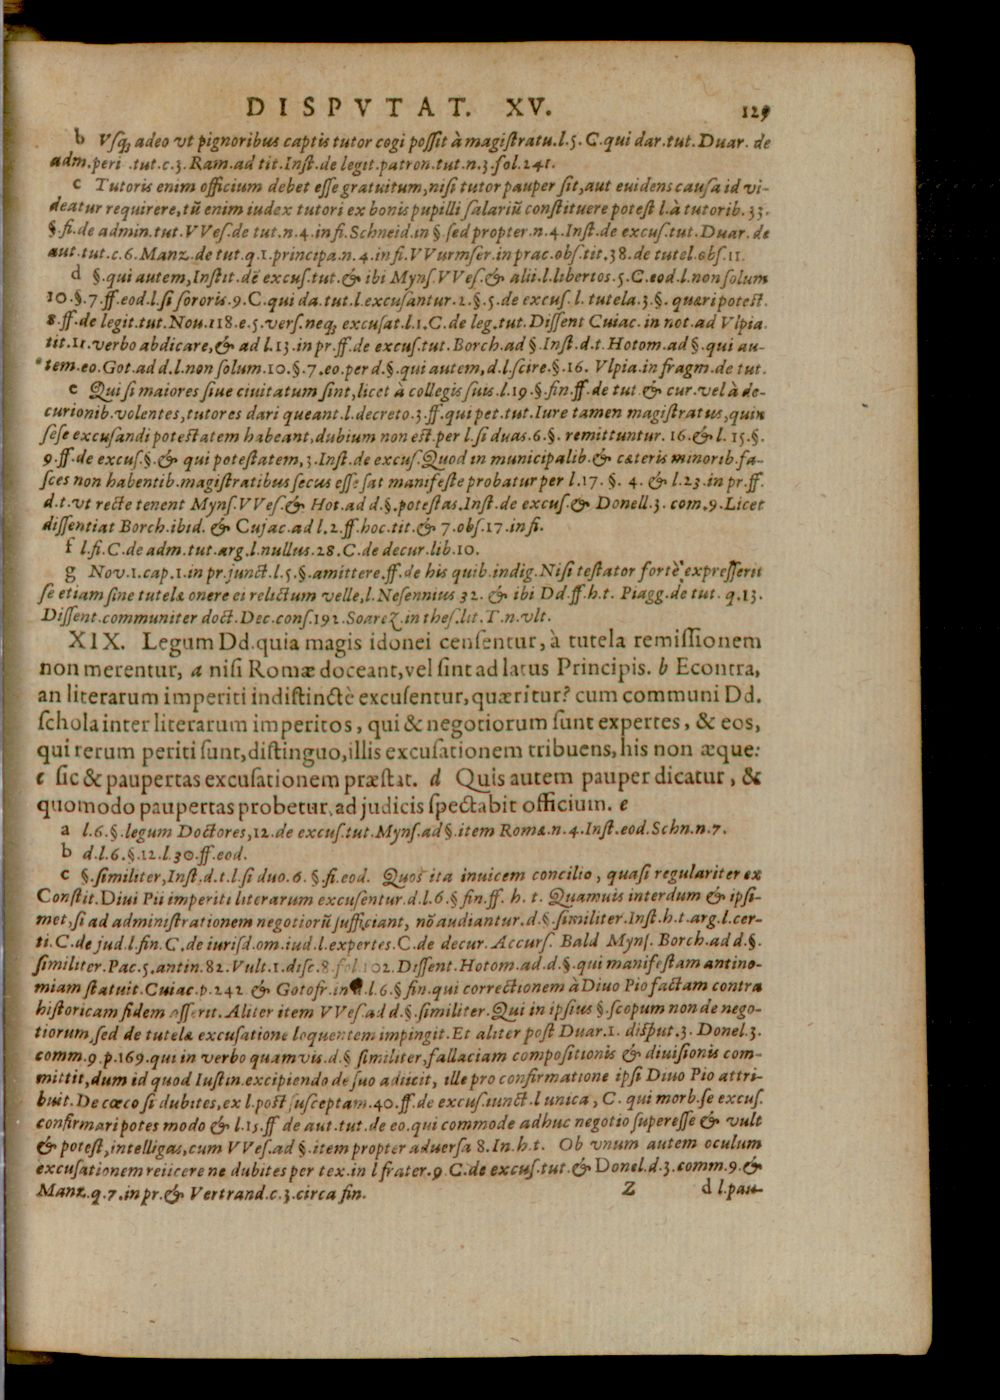 DISPVTAT. XV. 129
b Vsq; adeo vt pignoribus captis tutor cogi possit à magistratu.l.5.C.qui dar.tut.Duar. de
adm.peri .tut.c.3.Ram.ad tit.Inst.de legit.patron.tut.n.3.fol.241.
c Tutoris enim officium debet esse gratuitum,nisi tutor pauper sit,aut euidens causa id vi-
deatur requirere,tũ enim iudex tutori ex bonis pupilli salariũ constituere potest l.à tutorib.33.
§.fi.de admin.tut.VVes.de tut.n.4.in fi.Schneid.in §.sed propter.n.4.Inst.de excus.tut.Duar. de
aut.tut.c.6.Manz.de tut.q.1.principa.n.4.in fi.VVurmser.in prac.obs.tit.38.de tutel.obs.11.
d §.qui autem,Instit.dẽ excus.tut.& ibi Myns.VVes.& alii.l.libertos.5.C.eod.l.non solum
10.§.7.ff.eod.l.si sororis.9.C.qui da.tut.l.excusantur.2.§.5.de excus.l.tutela.3.§.quæri potest.
8.ff.de legit.tut.Nou.118.e.5.vers.neq; excusat.l.1.C.de leg.tut.Dissent Cuiac. in not.ad Vlpia.
tit.11.verbo abdicare,& ad l.13.in pr.ff.de excus.tut.Borch.ad §.Inst.d.t.Hotom.ad §.qui au-
tem.eo.Got.ad d.l.non solum.10.§.7.eo.per d.§.qui autem,d.l.scire.§.16. Vlpia.in fragm.de tut.
e Qui si maiores siue ciuitatum sint,licet à collegis suis.l.19.§.fin.ff.de tut & cur.vel à de-
curionib.volentes,tutores dari queant.l.decreto.3.ff.qui pet.tut.Iure tamen magistratus,quin
sese excusandi potestatem habeant,dubium non est.per l.si duas.6.§. remittuntur. 16.& l. 15.§.
9.ff.de excus.§.& qui potestatem,3.Inst.de excus.Quod in municipalib.& cæteris minorib.fa-
sces non habentib.magistratibus secus esse sat manifeste probatur per l.17. §. 4. & l.23.in pr.ff.
d.t.vt recte tenent Myns.VVes.& Hot.ad d.§.potestas.Inst.de excus.& Donell.3. com.9.Licet
dissentiat Borch.ibid. & Cujac.ad l.2.ff.hoc.tit.& 7.obs.17.in fi.
f l.fi.C.de adm.tut.arg.l.nullus.28.C.de decur.lib.10.
g Nov.1.cap.1.in pr.junct.l.5.§.amittere.ff.de his quib.indig.Nisi testator fortè expresserit
se etiam sine tutelæ onere ei relictum velle,l.Nesennius 32. & ibi Dd.ff.h.t. Piagg.de tut. q.13.
Dissent.communiter doct.Dec.cons.192.Soarez.in thes.lit.T.n.vlt.
XIX. Legum Dd.quia magis idonei censentur, à tutela remissionem
non merentur, a nisi Romæ doceant, vel sint ad latus Principis. b Econtra,
an literarum imperiti indistinctè excusentur, quæritur? cum communi Dd.
schola inter literarum imperitos, qui & negotiorum sunt expertes, & eos,
qui rerum periti sunt, distinguo, illis excusationem tribuens, his non æque:
c sic & paupertas excusationem præstat. d Quis autem pauper dicatur, &
quomodo paupertas probetur, ad judicis spectabit officium. e
a l.6.§.legum Doctores,12.de excus.tut.Myns.ad §.item Romæ.n.4.Inst.eod.Schn.n.7.
b d.l.6.§.12.l.30.ff.eod.
c §.similiter,Inst.d.t.l.si duo.6.§.fi.eod. Quos ita inuicem concilio, quasi regulariter ex
Constit.Diui Pii imperiti literarum excusentur.d.l.6.§ fin.ff. h. t. Quamuis interdum & ipsi-
met,si ad administrationem negotiorũ sufficiant, nõ audiantur.d.§.similiter.Inst.h.t.arg.l.cer-
ti.C.de jud.l.fin.C.de iurisd.om.iud.l.expertes.C.de decur. Accurs. Bald Myns. Borch.ad d.§.
similiter.Pac.5.antin.82.Vult.1.disc.8.fol.102.Dissent.Hotom.ad.d.§.qui manifestam antino-
miam statuit.Cuiac.p.242. & Gotofr.in .l.6.§ fin.qui correctionem à Diuo Pio factam contra
historicam fidem asserit. Aliter item VVes.ad d.§.similiter.Qui in ipsius §.scopum non de nego-
tiorum,sed de tutelæ excusatione loquentem impingit.Et aliter post Duar.1. disput.3. Donel.3.
comm.9.p.169.qui in verbo quamvis.d.§ similiter,fallaciam compositionis & diuisionis com-
mittit,dum id quod Iustin.excipiendo de suo adiicit, ille pro confirmatione ipsi Diuo Pio attri-
buit.De cœco si dubites,ex l.post susceptam.40.ff.de excus.iunct.l unica, C. qui morb.se excus.
confirmari potes modo & l.15.ff de aut.tut.de eo.qui commode adhuc negotio superesse & vult
& potest,intelligas,cum VVes.ad §.item propter aduersa 8.In.h.t. Ob vnum autem oculum
excusationem reiicere ne dubites per tex.in l frater.9 C.de excus.tut.& Donel.d.3.comm.9.&
Manz.q.7.in pr.& Vertrand.c.3.circa fin.
Z d l.pau-